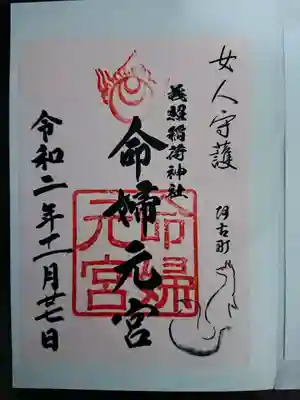 女人守護
阿古町
義照稲荷神社
命婦元宮
命婦元宮
令和二年十一月廿七日